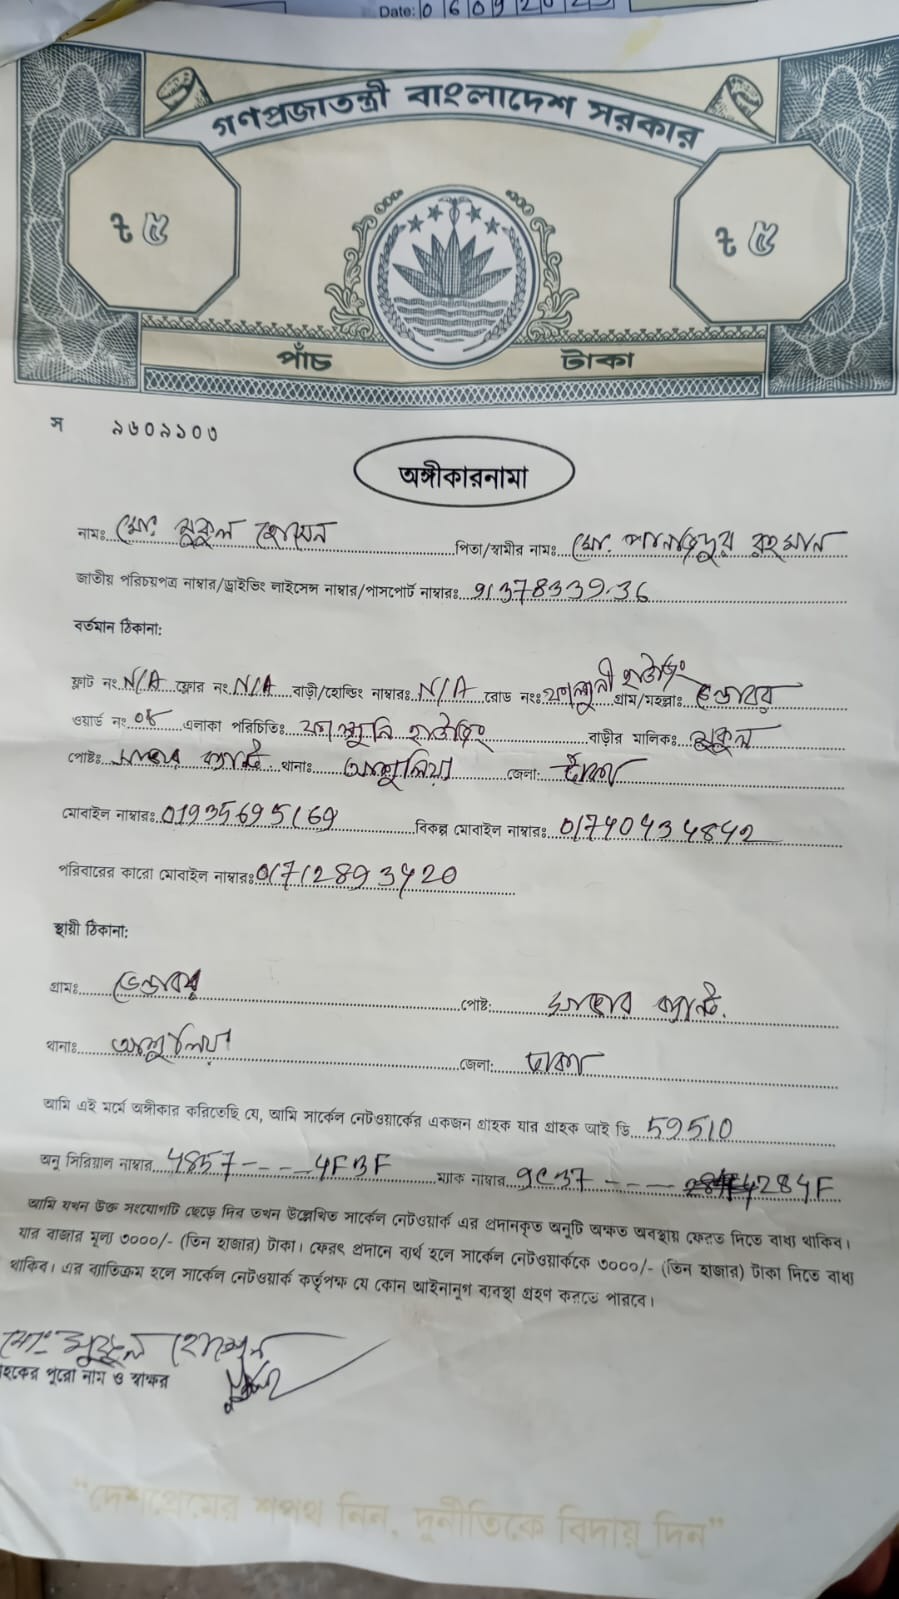 Date: 0 6 0 9 2 0 2
গণপ্রজাতন্ত্রী বাংলাদেশ সরকার
ট ৫ ট ৫
পাঁচ টাকা
স ৯৬০৯১০৩
অঙ্গীকারনামা
নামঃ মো. মুকুল হোসেন পিতা/স্বামীর নাম: মো. রহমান
জাতীয় পরিচয়পত্র নাম্বার/ড্রাইভিং লাইসেন্স নাম্বার/পাসপোর্ট নাম্বারঃ
বর্তমান ঠিকানা:
ফ্লাট নং N/A ফ্লোর নং N/A বাড়ী/হোল্ডিং নাম্বারঃ N/A রোড নংঃ পল্লী হাউজিং গ্রাম/মহল্লাঃ
ওয়ার্ড নং ০৪ এলাকা পরিচিতিঃ হাউজিং বাড়ীর মালিকঃ মুকুল
পোষ্টঃ থানাঃ আশুলিয়া জেলা: ঢাকা
মোবাইল নাম্বারঃ 01935695169 বিকল্প মোবাইল নাম্বারঃ 01740434842
পরিবারের কারো মোবাইল নাম্বারঃ
স্থায়ী ঠিকানা:
গ্রামঃ পোষ্ট:
থানাঃ আশুলিয়া জেলা: ঢাকা
আমি এই মর্মে অঙ্গীকার করিতেছি যে, আমি সার্কেল নেটওয়ার্কের একজন গ্রাহক যার গ্রাহক আই ডি 59510
অনু সিরিয়াল নাম্বার 4857----4FBF ম্যাক নাম্বার 9C37---- 284F
আমি যখন উক্ত সংযোগটি ছেড়ে দিব তখন উল্লেখিত সার্কেল নেটওয়ার্ক এর প্রদানকৃত অনুটি অক্ষত অবস্থায় ফেরত দিতে বাধ্য থাকিব।
যার বাজার মূল্য ৩০০০/- (তিন হাজার) টাকা। ফেরৎ প্রদানে ব্যর্থ হলে সার্কেল নেটওয়ার্ককে ৩০০০/- (তিন হাজার) টাকা দিতে বাধ্য
থাকিব। এর ব্যতিক্রম হলে সার্কেল নেটওয়ার্ক কর্তৃপক্ষ যে কোন আইনানুগ ব্যবস্থা গ্রহণ করতে পারবে।
মো: মুকুল হোসেন
হকের পুরো নাম ও স্বাক্ষর
"দেশপ্রেমের শপথ নিন, দুর্নীতিকে বিদায় দিন"